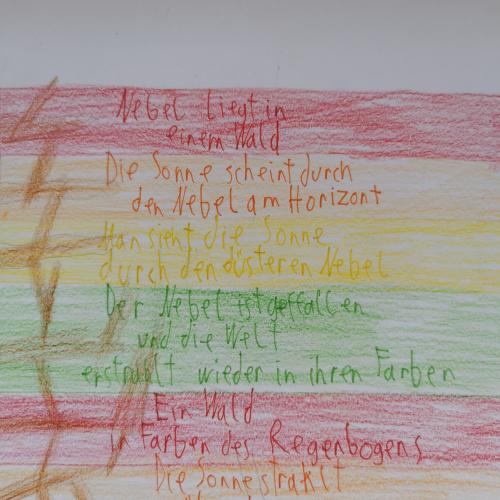 Nebel liegt in
einem Wald
Die Sonne scheint durch
den Nebel am Horizont
Man sieht die Sonne
durch den düsteren Nebel
Der Nebel ist geffallen
und die Welt
erstrahlt wieder in ihren Farben
Ein Wald
in Farben des Regenbogens
Die Sonne strahlt